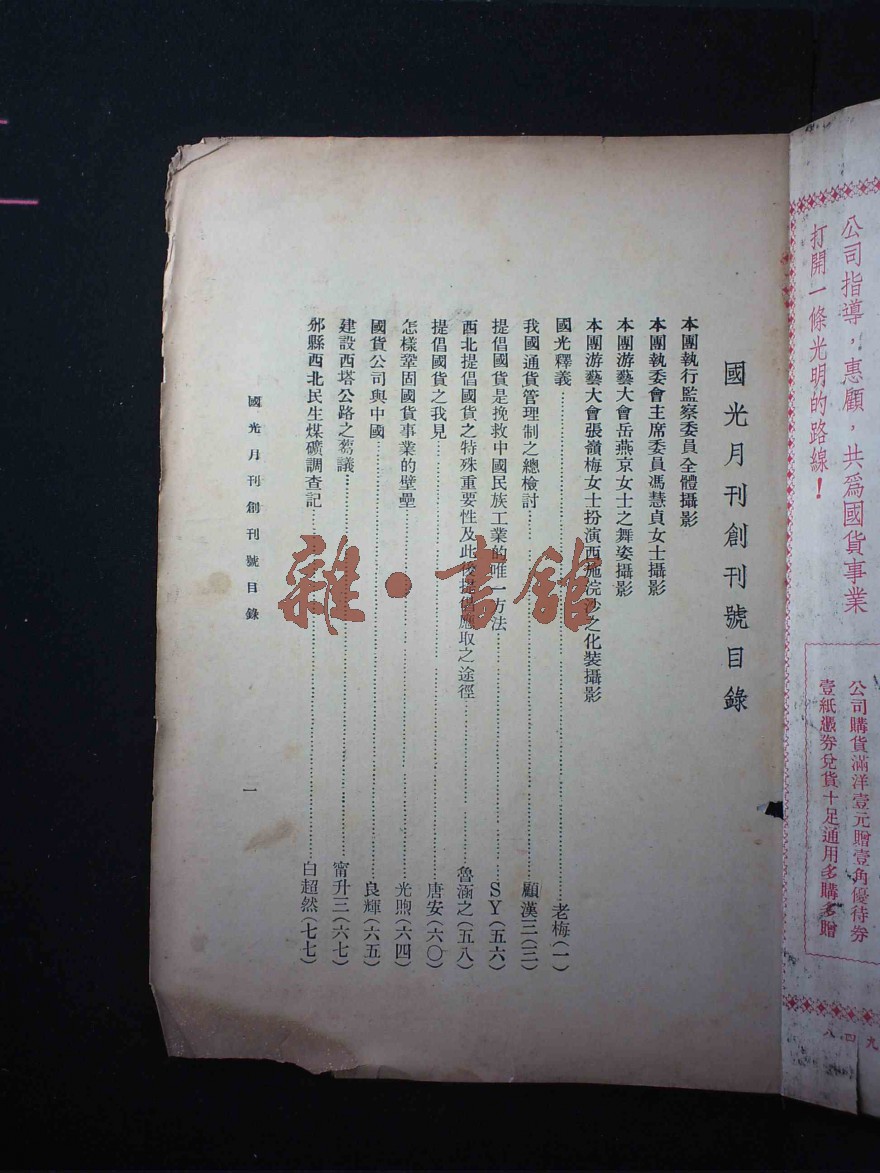 國光月刊創刊號目錄
本團執行監察委員全體攝影
本團執委會主席委員馮慧貞女士攝影
本團游藝大會岳燕京女士之舞姿攝影
本團游藝大會張嶺梅女士扮演西施浣沙之化裝攝影
國光釋義……老梅(一)
我國通貨管理制之總檢討……顧漢三(三)
提倡國貨是挽救中國民族工業的唯一方法……SY(五六)
西北提倡國貨之特殊重要性及此後提倡應取之途徑……魯涵之(五八)
提倡國貨之我見……唐安(六〇)
怎樣鞏固國貨事業的壁壘……光煦(六四)
國貨公司與中國……良輝(六五)
建設西塔公路之芻議……甯升三(六七)
邠縣西北民生煤礦調查記……白超然(七七)
國光月刊創刊號目錄
一
雜·書館
公司指導，惠顧，共爲國貨事業
打開一條光明的路線！
公司購貨滿洋壹元贈壹角優待券
壹紙憑券兌貨十足通用多購多贈
八四九